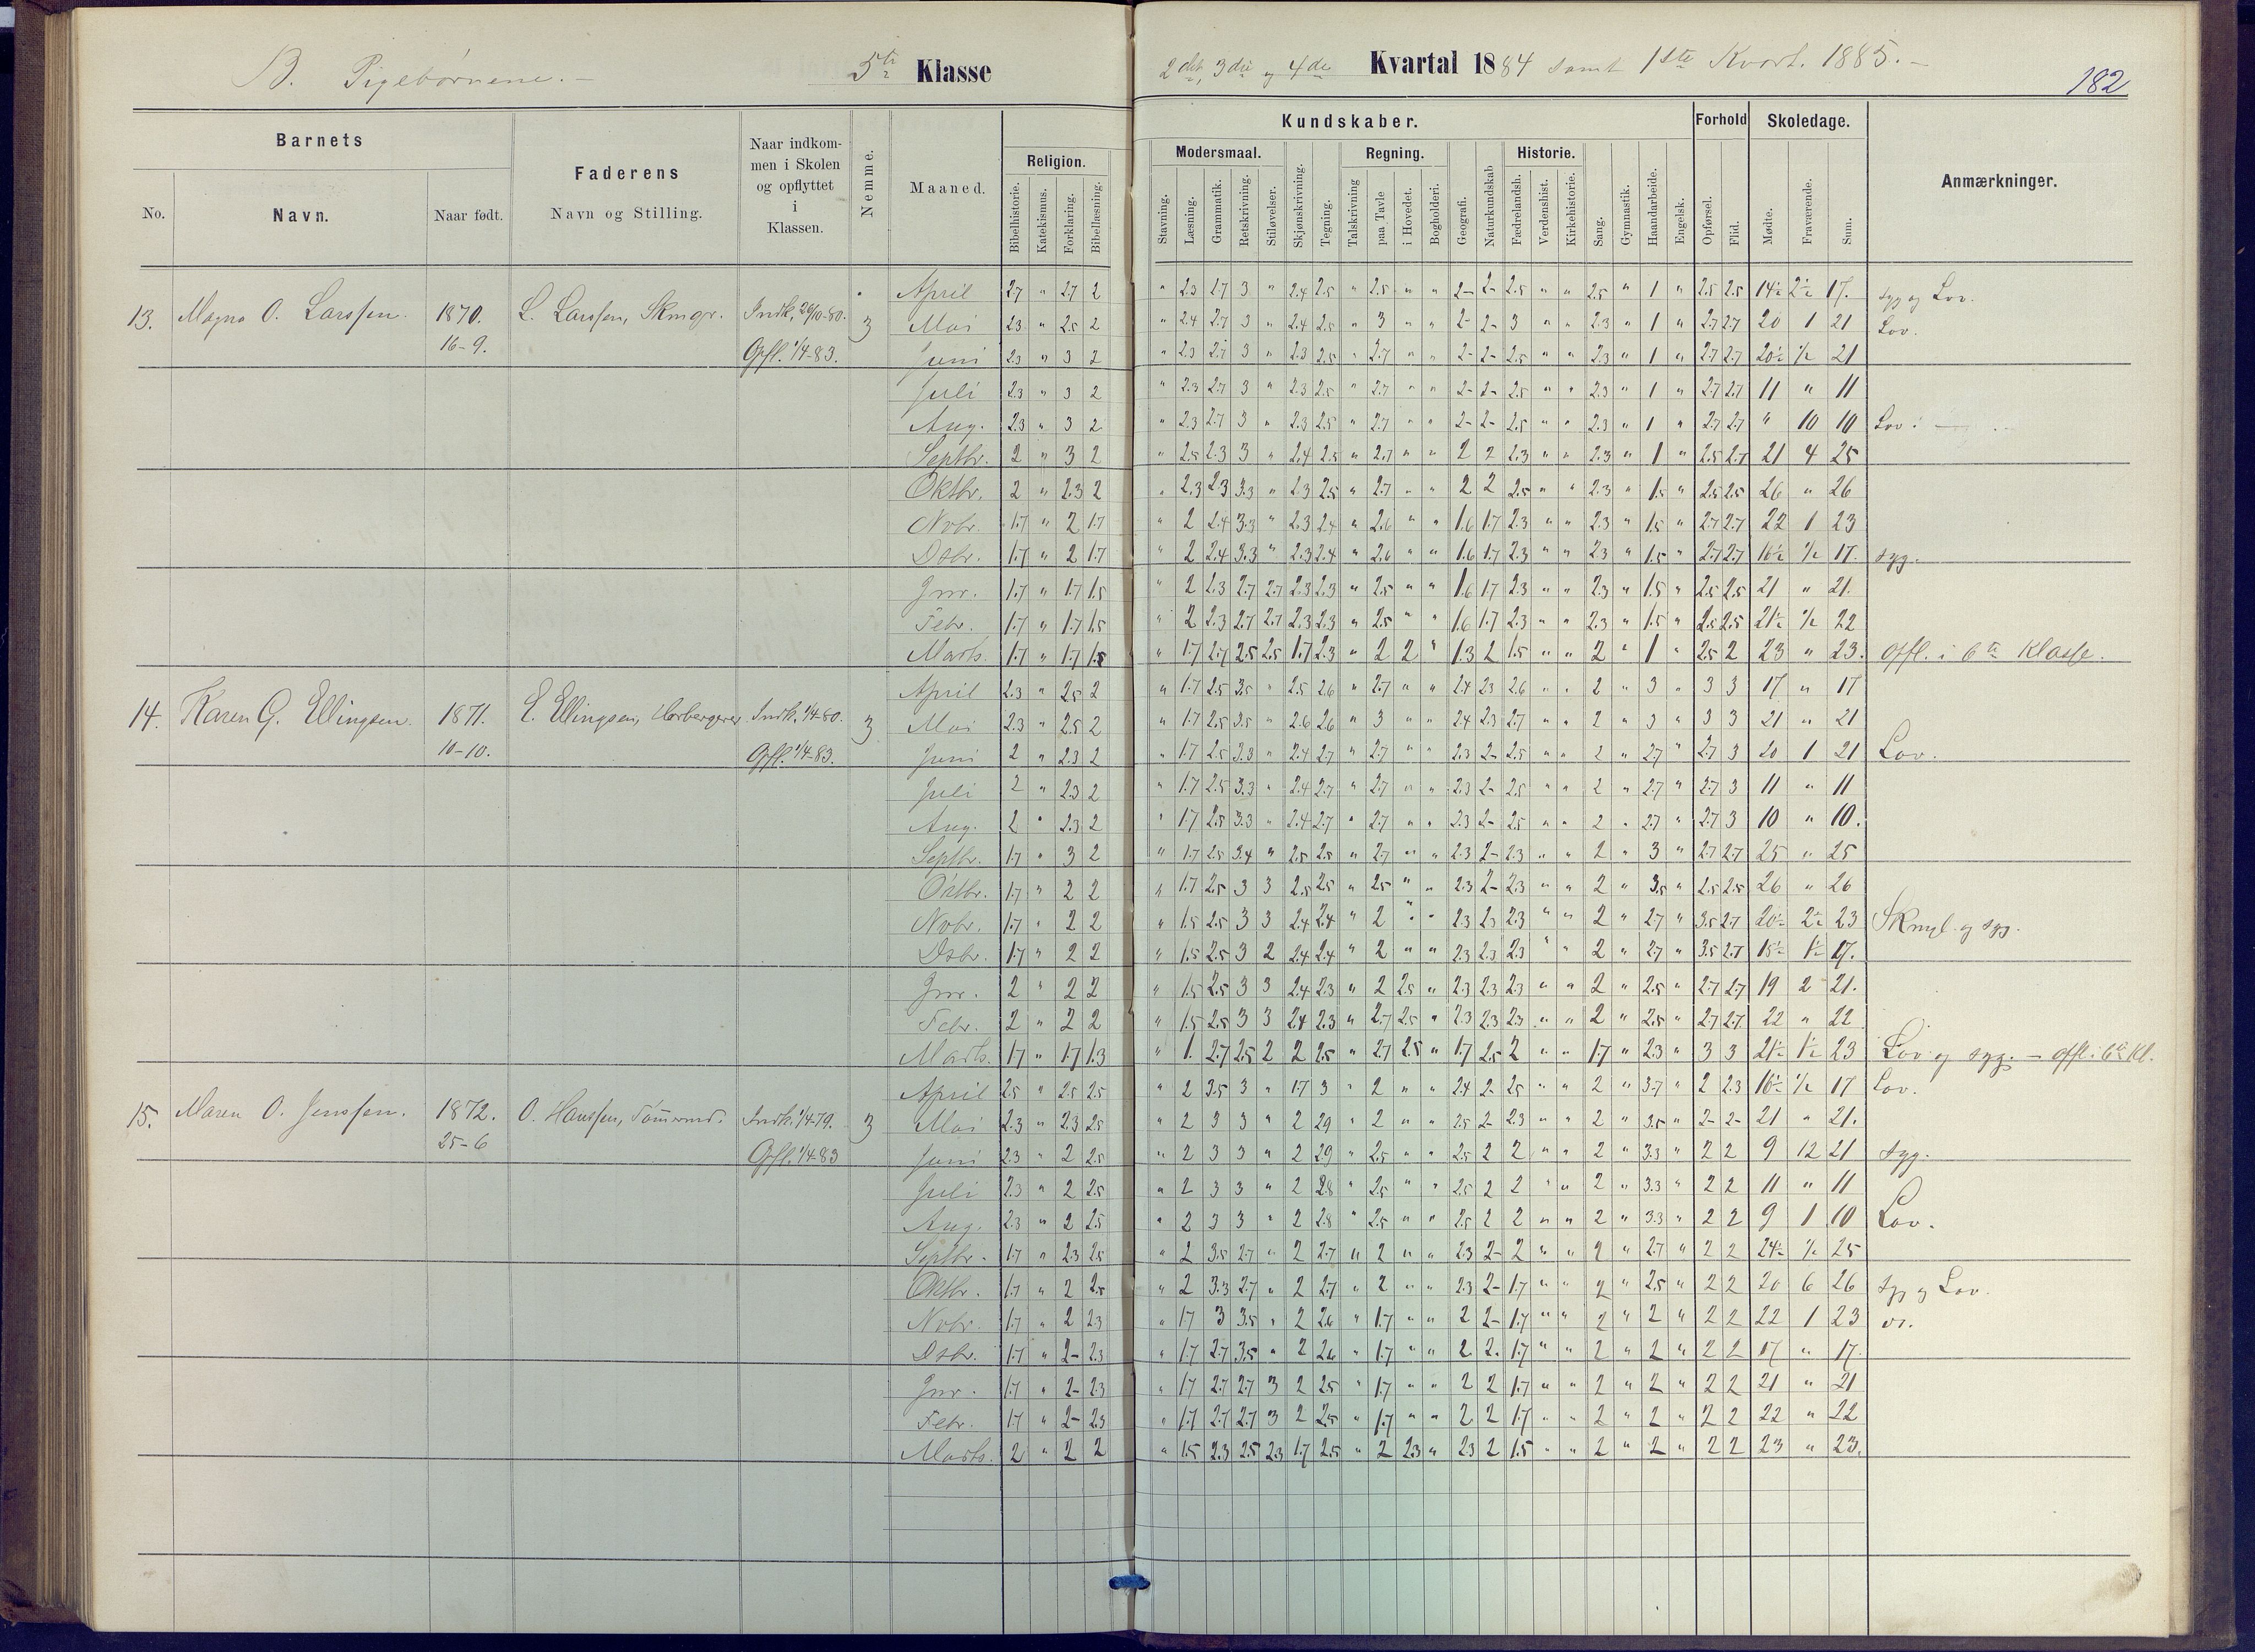 B. Pigebørnene. –
5te Klasse
2det, 3die og 4de Kvartal 1884 samt 1ste Kvart. 1885. –
182
Barnets
No.
Navn.
Naar født.
Faderens
Navn og Stilling.
Naar indkom-
men i Skolen
og opflyttet
i
Klassen.
Nemme.
Maaned.
Kundskaber.
Religion.
Bibelhistorie.
Katekismus.
Forklaring.
Bibellæsning.
Modersmaal.
Stavning.
Læsning.
Grammatik.
Retskrivning.
Stiløvelser.
Skjønskrivning.
Tegning.
Regning.
Talskrivning
paa Tavle
i Hovedet.
Bogholderi.
Geografi.
Naturkundskab
Historie.
Fædrelandsh.
Verdenshist.
Kirkehistorie.
Sang.
Gymnastik.
Haandarbeide.
Engelsk.
Forhold
Opførsel.
Flid.
Skoledage.
Mødte.
Fraværende.
Sum.
Anmærkninger.
13. Magna O. Larssen. 1870. 16-9. L. Larssen, Skmgr. Indk. 20/10-80. Opfl. 1/4-83. 3
April 2.7 " 2.7 2 " 2.3 2.7 3 " 2.4 2.5 " 2.5 " " 2- 2- 2.5 " " 2.5 " 1 " 2.5 2.5 14½ 2½ 17. syg og Lov.
Mai 2.3 " 2.5 2 " 2.4 2.7 3 " 2.4 2.5 " 3 " " 2- 2- 3 " " 2.3 " 1 " 2.7 2.7 20 1 21 Lov.
Juni 2.3 " 3 2 " 2.3 2.7 3 " 2.3 2.5 " 2.7 " " 2- 2- 2.5 " " 2.3 " 1 " 2.7 2.7 20½ ½ 21
Juli 2.3 " 3 2 " 2.3 2.7 3 " 2.3 2.5 " 2.7 " " 2- 2- 2.5 " " 2.3 " 1 " 2.7 2.7 11 " 11
Aug. 2.3 " 3 2 " 2.3 2.7 3 " 2.3 2.5 " 2.7 " " 2- 2- 2.5 " " 2.3 " 1 " 2.7 2.7 " 10 10 Lov.
Septbr. 2 " 3 2 " 2.5 2.3 3 " 2.4 2.5 " 2.7 " " 2 2 2.3 " " 2.3 " 1 " 2.5 2.7 21 4 25
Oktbr. 2 " 2.3 2 " 2.3 2.3 3.3 " 2.3 2.5 " 2.7 " " 2 2 2.5 " " 2.3 " 1.5 " 2.5 2.5 26 " 26
Nobr. 1.7 " 2 1.7 " 2 2.4 3.3 " 2.3 2.4 " 2.6 " " 1.6 1.7 2.3 " " 2.3 " 1.5 " 2.7 2.7 22 1 23
Dsbr. 1.7 " 2 1.7 " 2 2.4 3.3 " 2.3 2.4 " 2.6 " " 1.6 1.7 2.3 " " 2.3 " 1.5 " 2.7 2.7 16½ ½ 17. syg.
Jnr. 1.7 " 1.7 1.5 " 2 2.3 2.7 2.7 2.3 2.3 " 2.5 " " 1.6 1.7 2.3 " " 2.3 " 1.5 " 2.5 2.5 21 " 21.
Febr. 1.7 " 1.7 1.5 " 2 2.3 2.7 2.7 2.3 2.3 " 2.5 " " 1.6 1.7 2.3 " " 2.3 " 1.5 " 2.5 2.5 21½ ½ 22
Marts. 1.7 " 1.7 1.5 " 1.7 2.7 2.5 2.5 1.7 2.3 " 2 2 " 1.3 2 1.5 " " 2 " 1 " 2.5 2 23 " 23. opfl. i 6te Klasse.
14. Karen G. Ellingsen. 1871. 10-10. E. Ellingsen, Herbergerer. Indk. 1/4-80. Opfl. 1/4-83. 3
April 2.3 " 2.5 2 " 1.7 2.5 3.5 " 2.5 2.6 " 2.7 " " 2.4 2.3 2.6 " " 2 " 3 " 3 3 17 " 17
Mai 2.3 " 2.5 2 " 1.7 2.5 3.5 " 2.6 2.6 " 3 " " 2.4 2.3 2.7 " " 2 " 3 " 3 3 21 " 21
Juni 2 " 2.3 2 " 1.7 2.5 3.3 " 2.4 2.7 " 2.7 " " 2.3 2- 2.5 " " 2 " 2.7 " 2.7 3 20 1 21 Lov.
Juli 2 " 2.3 2 " 1.7 2.5 3.3 " 2.4 2.7 " 2.7 " " 2.3 2- 2.5 " " 2 " 2.7 " 2.7 3 11 " 11
Aug. 2 " 2.3 2 " 1.7 2.5 3.3 " 2.4 2.7 " 2.7 " " 2.3 2- 2.5 " " 2 " 2.7 " 2.7 3 10 " 10.
Septbr. 1.7 " 3 2 " 1.7 2.5 3.4 " 2.5 2.5 " 2.7 " " 2.3 2- 2.3 " " 2 " 3 " 2.7 2.7 25 " 25
Oktbr. 1.7 " 2 2 " 1.7 2.5 3 3 2.5 2.5 " 2.5 " " 2.3 2- 2.3 " " 2 " 3.5 " 2.5 2.5 26 " 26
Nobr. 1.7 " 2 2 " 1.5 2.5 3 3 2.4 2.4 " 2 " " 2.3 2.3 2.3 " " 2 " 2.7 " 3.5 2.7 20½ 2½ 23 Skmgl. og syg.
Dsbr. 1.7 " 2 2 " 1.5 2.5 3 2 2.4 2.4 " 2 " " 2.3 2.3 2.3 " " 2 " 2.7 " 3.5 2.7 15½ 1½ 17.
Jnr. 2 " 2 2 " 1.5 2.5 3 3 2.4 2.3 " 2 2.5 " 2.3 2.3 2.3 " " 2 " 2.5 " 2.7 2.7 19 2 21.
Febr. 2 " 2 2 " 1.5 2.5 3 3 2.4 2.3 " 2.7 2.5 " 2.3 2.3 2.3 " " 2 " 2.5 " 2.7 2.7 22 " 22
Marts. 1.7 " 1.7 1.3 " 1. 2.7 2.5 2 2 2.5 " 2.7 2.5 " 1.7 2.5 2 " " 1.7 " 2.3 " 3 3 21½ 1½ 23 Lov og syg. – opfl. i 6te Kl.
15. Maren O. Jenssen. 1872. 25-6 O. Hanssen, Tømmrmd. Indk. 1/4-79. Opfl. 1/4-83 3
April 2.5 " 2.5 2.5 " 2 3.5 3 " 1.7 3 " 2 " " 2.4 2- 2.5 " " 2 " 3.7 " 2 2.3 16½ ½ 17 Lov.
Mai 2.3 " 2.3 2.5 " 2 3 3 " 2 2.9 " 2 " " 2.5 2- 2.3 " " 2 " 3.5 " 2- 2- 21 " 21.
Juni 2.3 " 2 2.5 " 2 3 3 " 2 2.9 " 2.5 " " 2.5 2 2 " " 2 " 3.3 " 2 2 9 12 21 syg.
Juli 2.3 " 2 2.5 " 2 3 3 " 2 2.8 " 2.5 " " 2.5 2 2 " " 2 " 3.3 " 2 2 11 " 11
Aug. 2.3 " 2 2.5 " 2 3 3 " 2 2.8 " 2.5 " " 2.5 2 2 " " 2 " 3.3 " 2 2 9 1 10 Lov.
Septbr. 1.7 " 2.3 2.5 " 2 3.5 2.7 " 2 2.7 " 2 " " 2.3 2- 2 " " 2 " 2.7 " 2 2 24½ ½ 25
Oktbr. 1.7 " 2 2.5 " 2 3.3 2.7 " 2 2.7 " 2 " " 2.3 2- 1.7 " " 2 " 2.5 " 2 2 20 6 26 syg og Lov.
Nobr. 1.7 " 2 2.3 " 1.7 3 3.5 " 2 2.6 " 1.7 " " 2 2- 1.7 " " 2 " 2 " 2 2 22 1 23
Dsbr. 1.7 " 2- 2.3 " 1.7 2.7 3.5 " 2 2.6 " 1.7 " " 2 2. 1.7 " " 2 " 2 " 2 2 17 " 17.
Jnr. 1.7 " 2- 2.3 " 1.7 2.7 2.7 3 2 2.5 " 1.7 " " 2 2 1.7 " " 2 " 2 " 2 2 21 " 21
Febr. 1.7 " 2- 2.3 " 1.7 2.7 2.7 3 2 2.5 " 1.7 " " 2 2 1.7 " " 2 " 2 " 2 2 22 " 22
Marts. 2 " 2 2 " 1.5 2.3 2.5 2.3 1.7 2.5 " 2 2.3 " 2.3 2 1.5 " " 2 " 2 " 2 2 23 " 23.